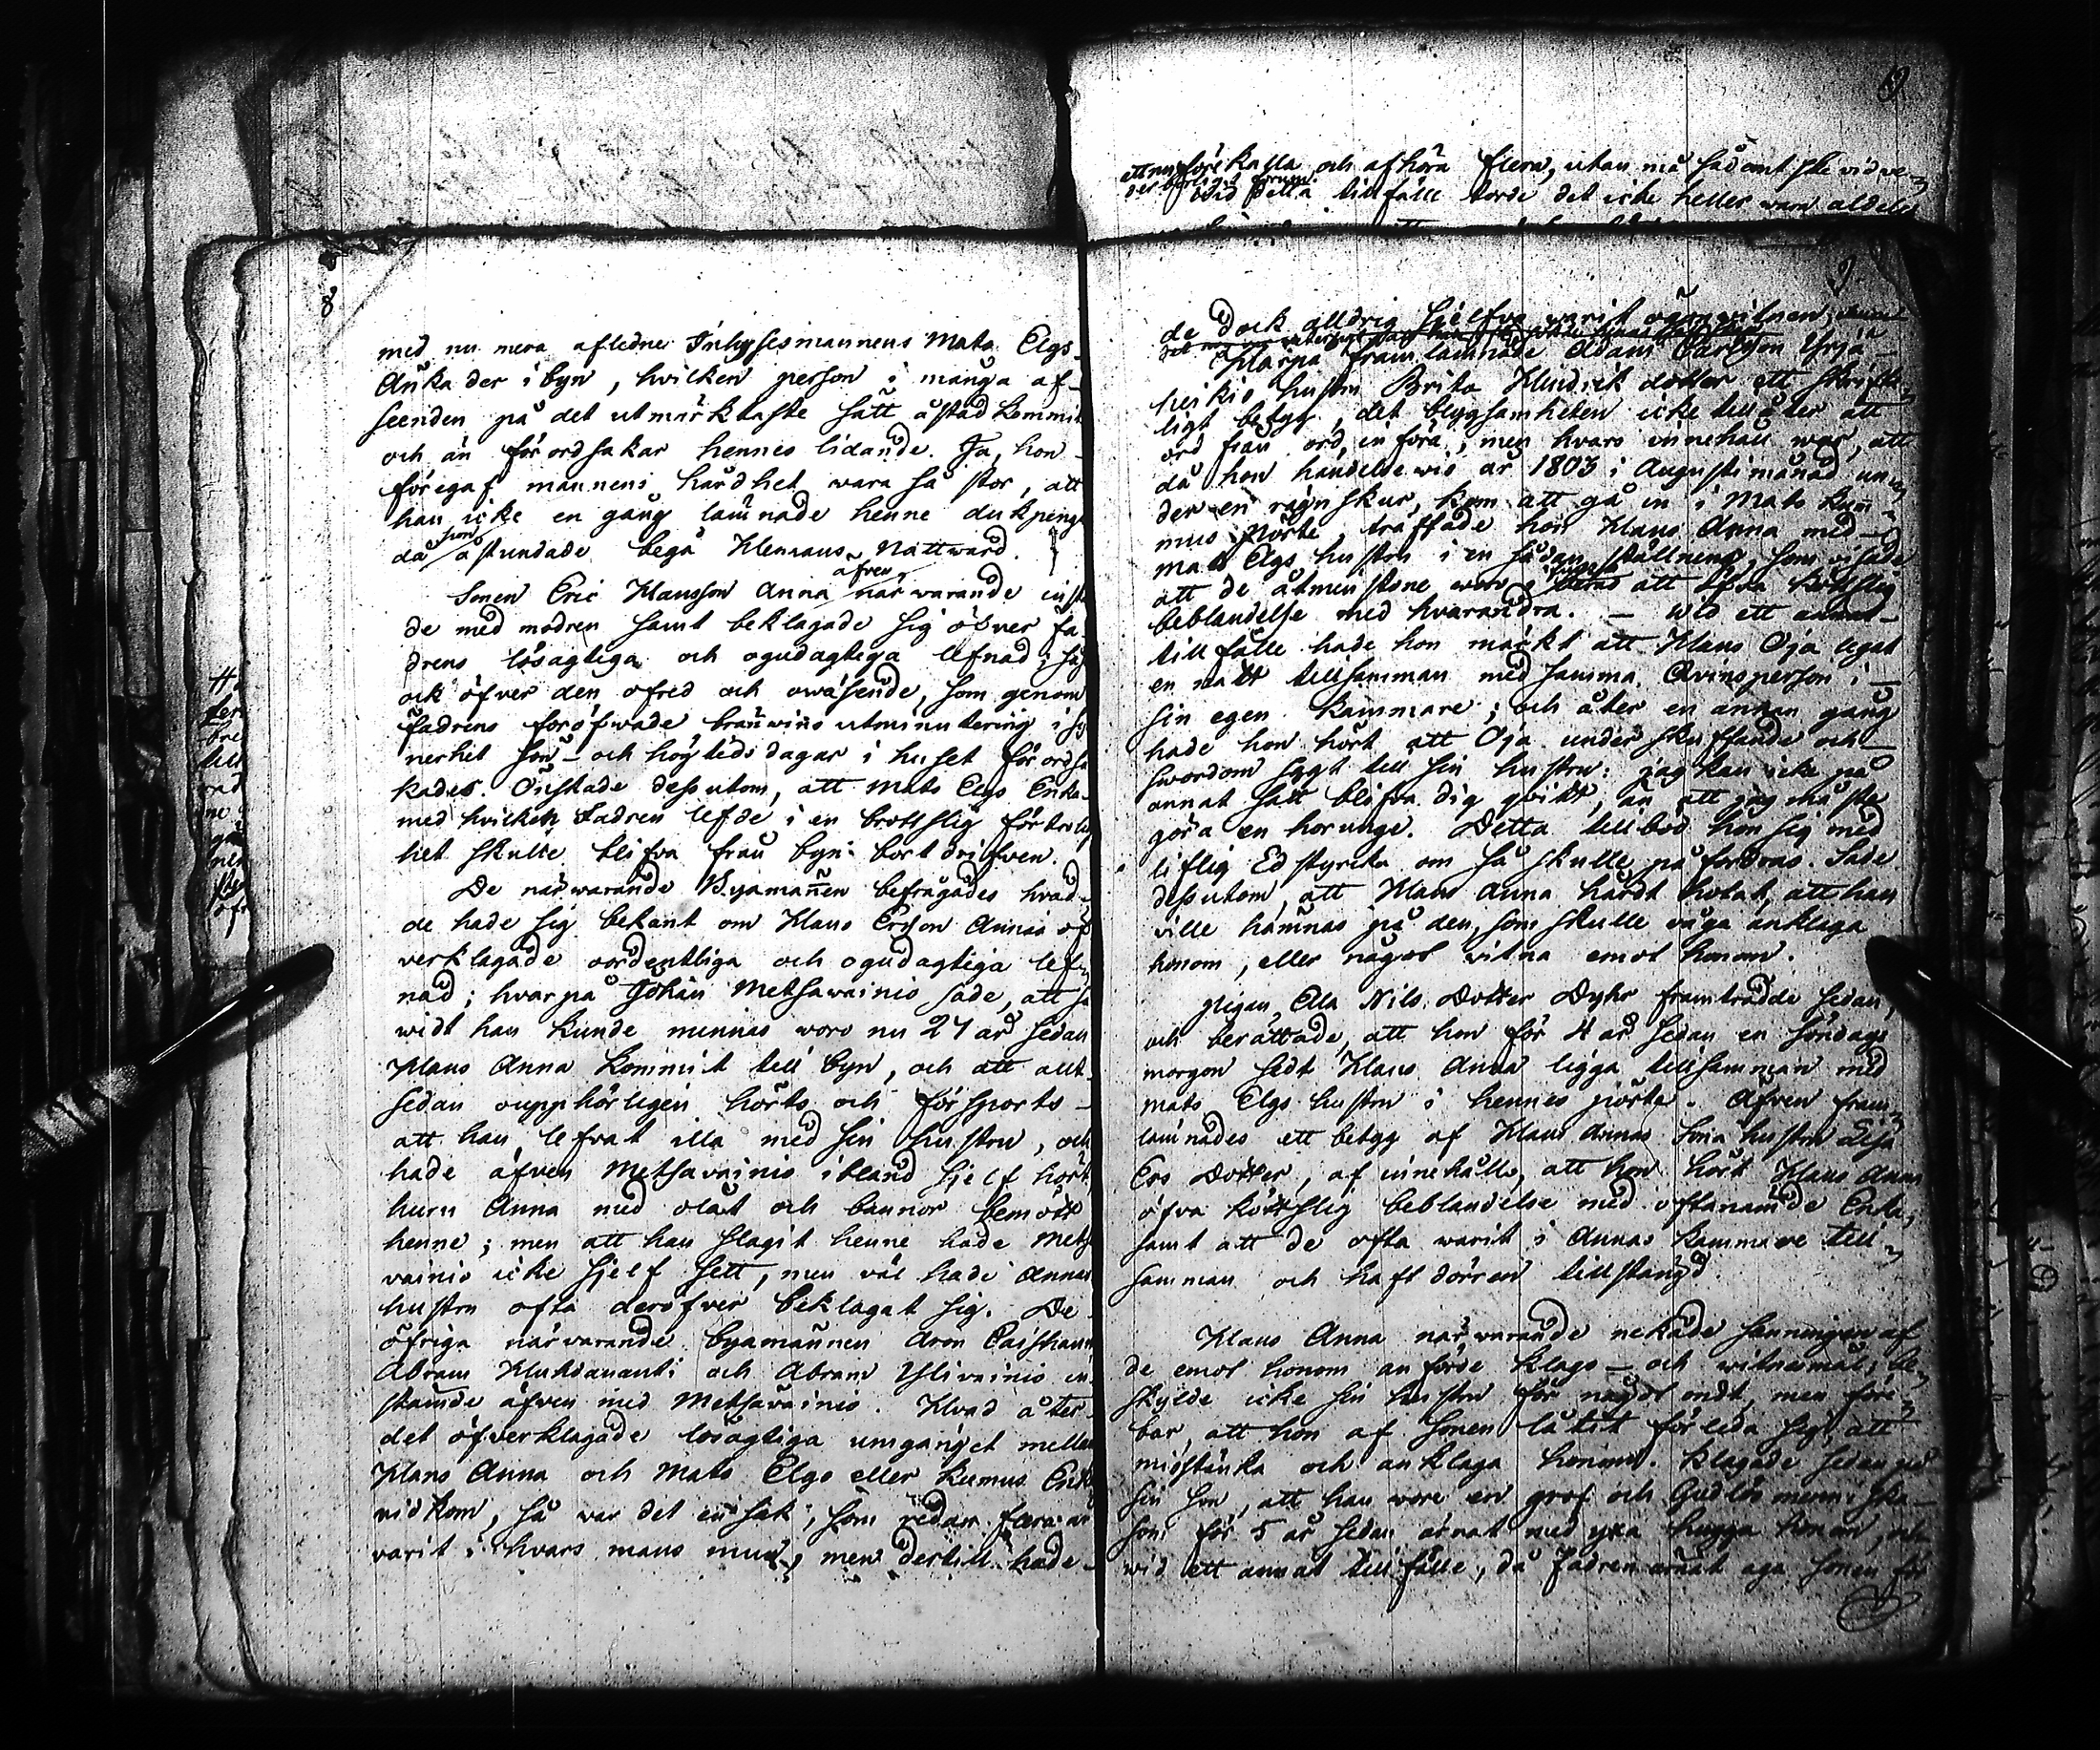 9
ett nu förekalla och afhöra flera, utan må sådant ske vid ve-
derbörligit forum.
Wid detta tillfälle torde det icke heller wara aldeles
8
med nu mera afledne Inhysesmannens Mats Elgs
Änka der i byn, hwilken person i många af-
seenden på det utmärktaste sätt åstadkommit
och än förordsakar hennes lidande. Ja, hon
föregaf mannens hårdhet wara så stor, att
han icke en gång lämnade henne dukpengar
då hon åstundade begå Herrans Nattward.
Sonen Eric Klausson Anna äfven närwarande instäm
de med modren samt beklagade sig öfver fa-
drens lösagtiga och ogudagtiga lefnad; så
ock öfver den ofred och owäsende, som genom
fadrens föröfwade bränwins utminutering i sy
nerhet Sön- och högtidsdagar i huset förordsa
kades. Önskade dessutom, att Mats Elgs Enka
med hvilken Fadren lefde i en brottslig förtrolig
het skulle blifva från byn bortdrifven.
De närwarande Byamännen befrågades hvad
de hade sig bekant om Klaus Ersson Annas öf
verklagade oordentliga och ogudagtiga lef-
nad; hvarpå Johan Metsawainio sade, att så
widt han kunde minnas woro nu 24 år sedan
Klaus Anna kommit till byn, och att allt
sedan oupphörligen hörts och försports
att han lefvat illa med sin hustru, och
hade äfven Metsavainio ibland sjelf hört,
huru Anna med olåt och bannor bemött
henne; men att han slagit henne hade Metsa
vainio icke sjelf sett, men väl hade Annas
hustru ofta deröfver beklagat sig. De
öfriga närvarande byamännen Aron
Abram och Abram Ylivainio in
stämde äfven med Metsavainio. Hvad åter
det öfverklagade lösagtiga umgänget mellan
Klaus Anna och Mats Elgs eller Kumus Enka
vidkom, så war det en sak, som redan flera år
varit i hvars mans mun, men dertill hade
9
de dock alldrig sjelfva warit ögonvitnen
Härpå framlämnade Adam Carlsson Yrjä-
heikis hustru Brita Hindrik dotter ett skrifte
ligt betyg, det blygsamheten icke tillåter att
ord från ord införa, men hvars innehåll war, att
då hon händelsewis år 1803 i Augusti månad un
der en rägnskur, kom att gå in i Mats Kum-
mus Pörte träffade hon Klaus Anna med
Mats Elgs hustru i en sådan ställning, som visade
att de åtminstone woro att öfva köttslig
beblandelse med hvarandra. - Wid ett annat
tillfälle hade hon märkt att Klaus Oja legat
en natt tillsamman med samma Qvinsperson i
sin egen kammare; och åter en annan gång
hade hon hört att Oja under skuffande och
swordom sagt till sin hustru: jag kan icke på
annat sätt blifva dig qvitt, än att jag måste
göra en horunge. Detta tillböd hon sig med
liflig Ed styrcka om så skulle påfordras. Sade
dessutom, att Klaus Anna hårdt hotat, att han
ville hämnas på den, som skulle våga anklaga
honom, eller något vitna emot honom.
Pigan Ella Nils Dotter Dyhr framträdde sedan,
och berättade, att hon för 4 år sedan en söndags
morgon sedt Klaus Anna ligga tillsamman med
Mats Elgs hustru i hennes pörte. Äfven fram
lämnades ett betyg af Klaus Annas Sons hustru Lisa
Ers Dotter, af innehåll, att hon hört Klaus Anna
öfva köttslig beblandelse med oftanämde Enka;
samt att de ofta warit i Annas kammare till
samman och haft dörren tillstängd.
Klaus Anna närwarande nekade sanningen af
de emot honom anförde klago- och witnesmål; be
skylde icke sin hustru för något ondt, men före
bar, att hon af Sonen låtit förleda sig, att
misstänka och anklaga honom. Klagade sedan på
sin Son, att han wore en grof och Gudlös menniska
som för 5 år sedan ärnat med yxa hugga honom, och
wid ett annat tillfälle, då Fadren ärnat aga Sonen för